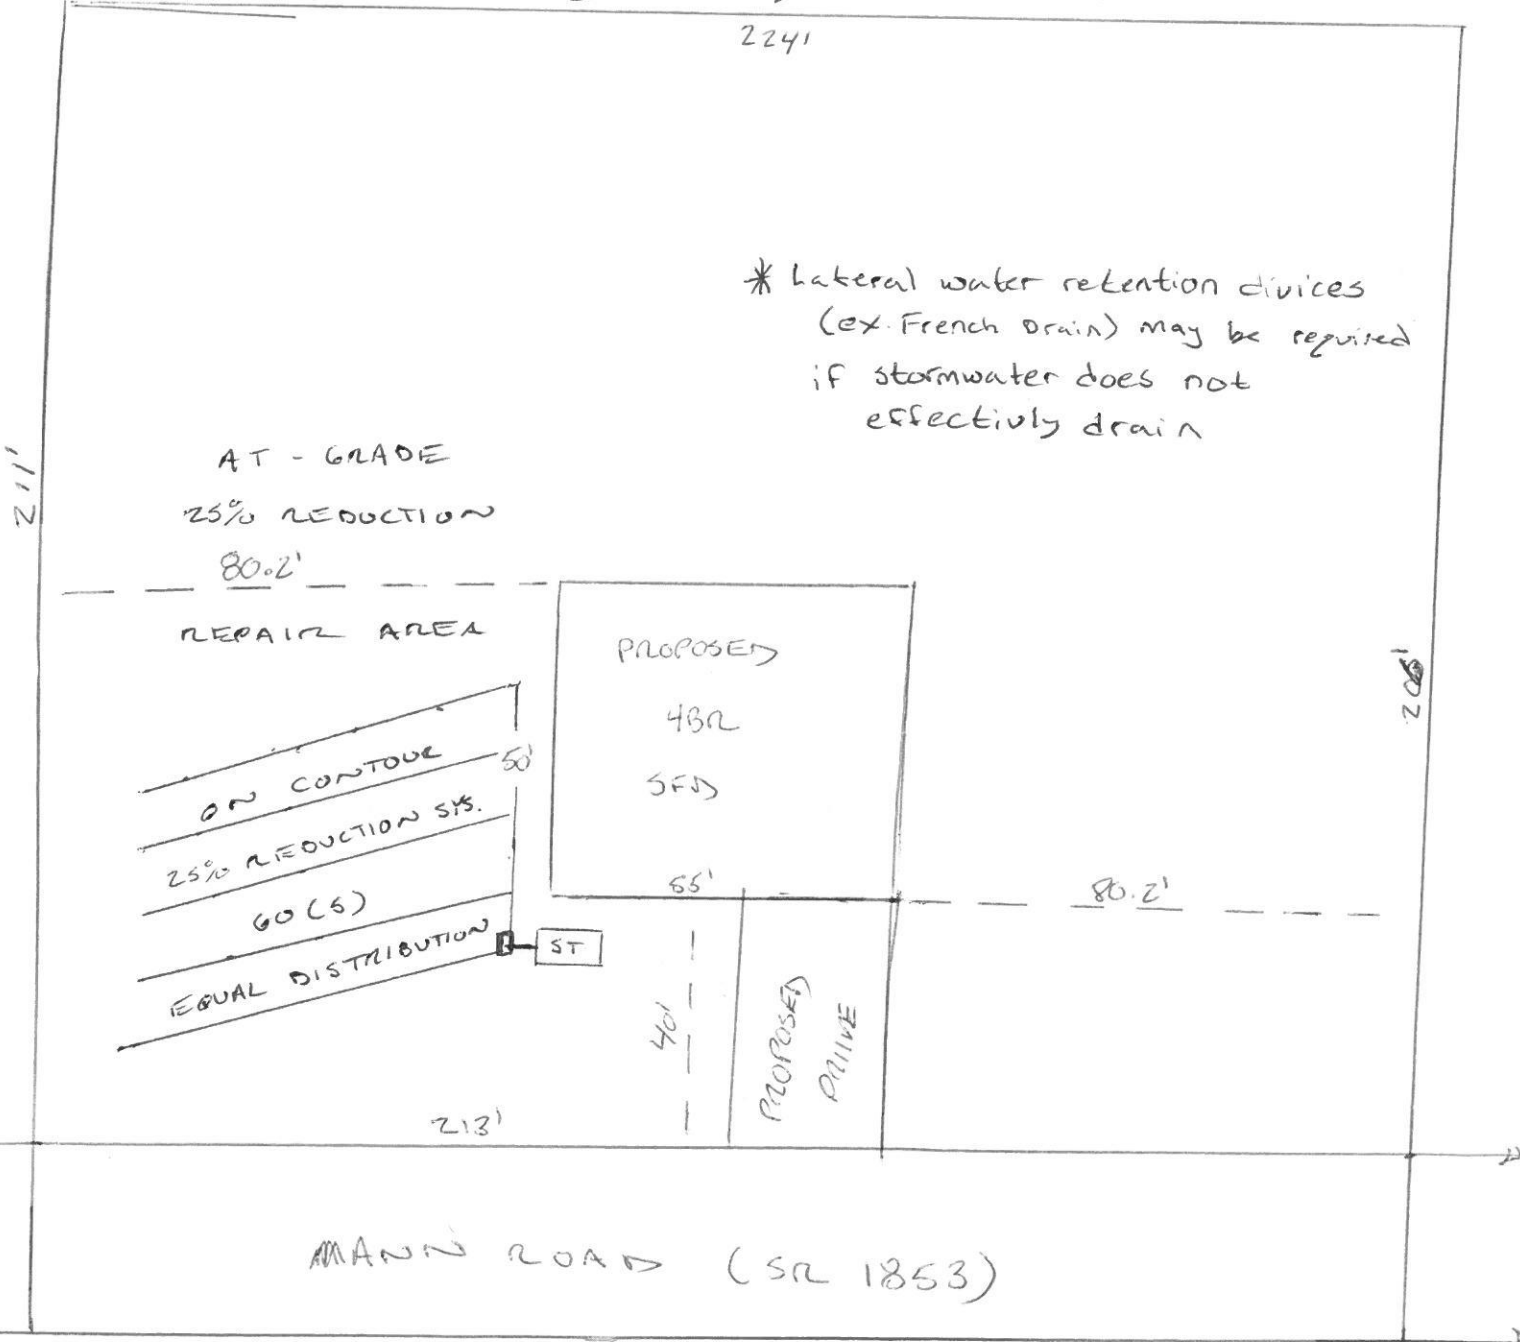 224'
* Lateral water retention divices
(ex. French Drain) may be required
if stormwater does not
effectivly drain
211'
AT - GRADE
25% REDUCTION
80.2'
REPAIR AREA
PROPOSED
4BR
SFD
55'
ON CONTOUR
50'
25% REDUCTION SYS.
60(5)
EQUAL DISTRIBUTION
ST
80.2'
40'
PROPOSED
DRIVE
213'
MANN ROAD (SR 1853)